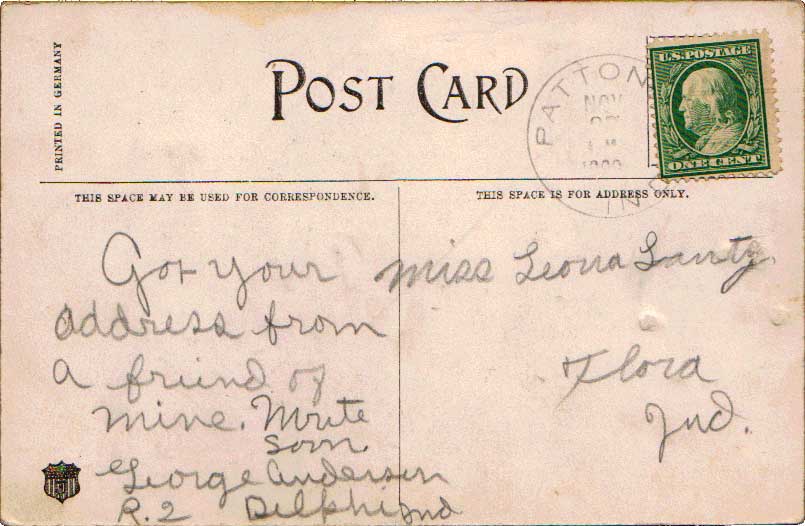 PRINTED IN GERMANY
POST CARD
PATTON
NOV
IND
U.S. POSTAGE
ONE CENT
THIS SPACE MAY BE USED FOR CORRESPONDENCE.
THIS SPACE IS FOR ADDRESS ONLY.
Got your
address from
a friend of
mine. Write
soon
George Anderson
R.2 Delphi Ind
Miss Leona Lantz
Flora
Ind.